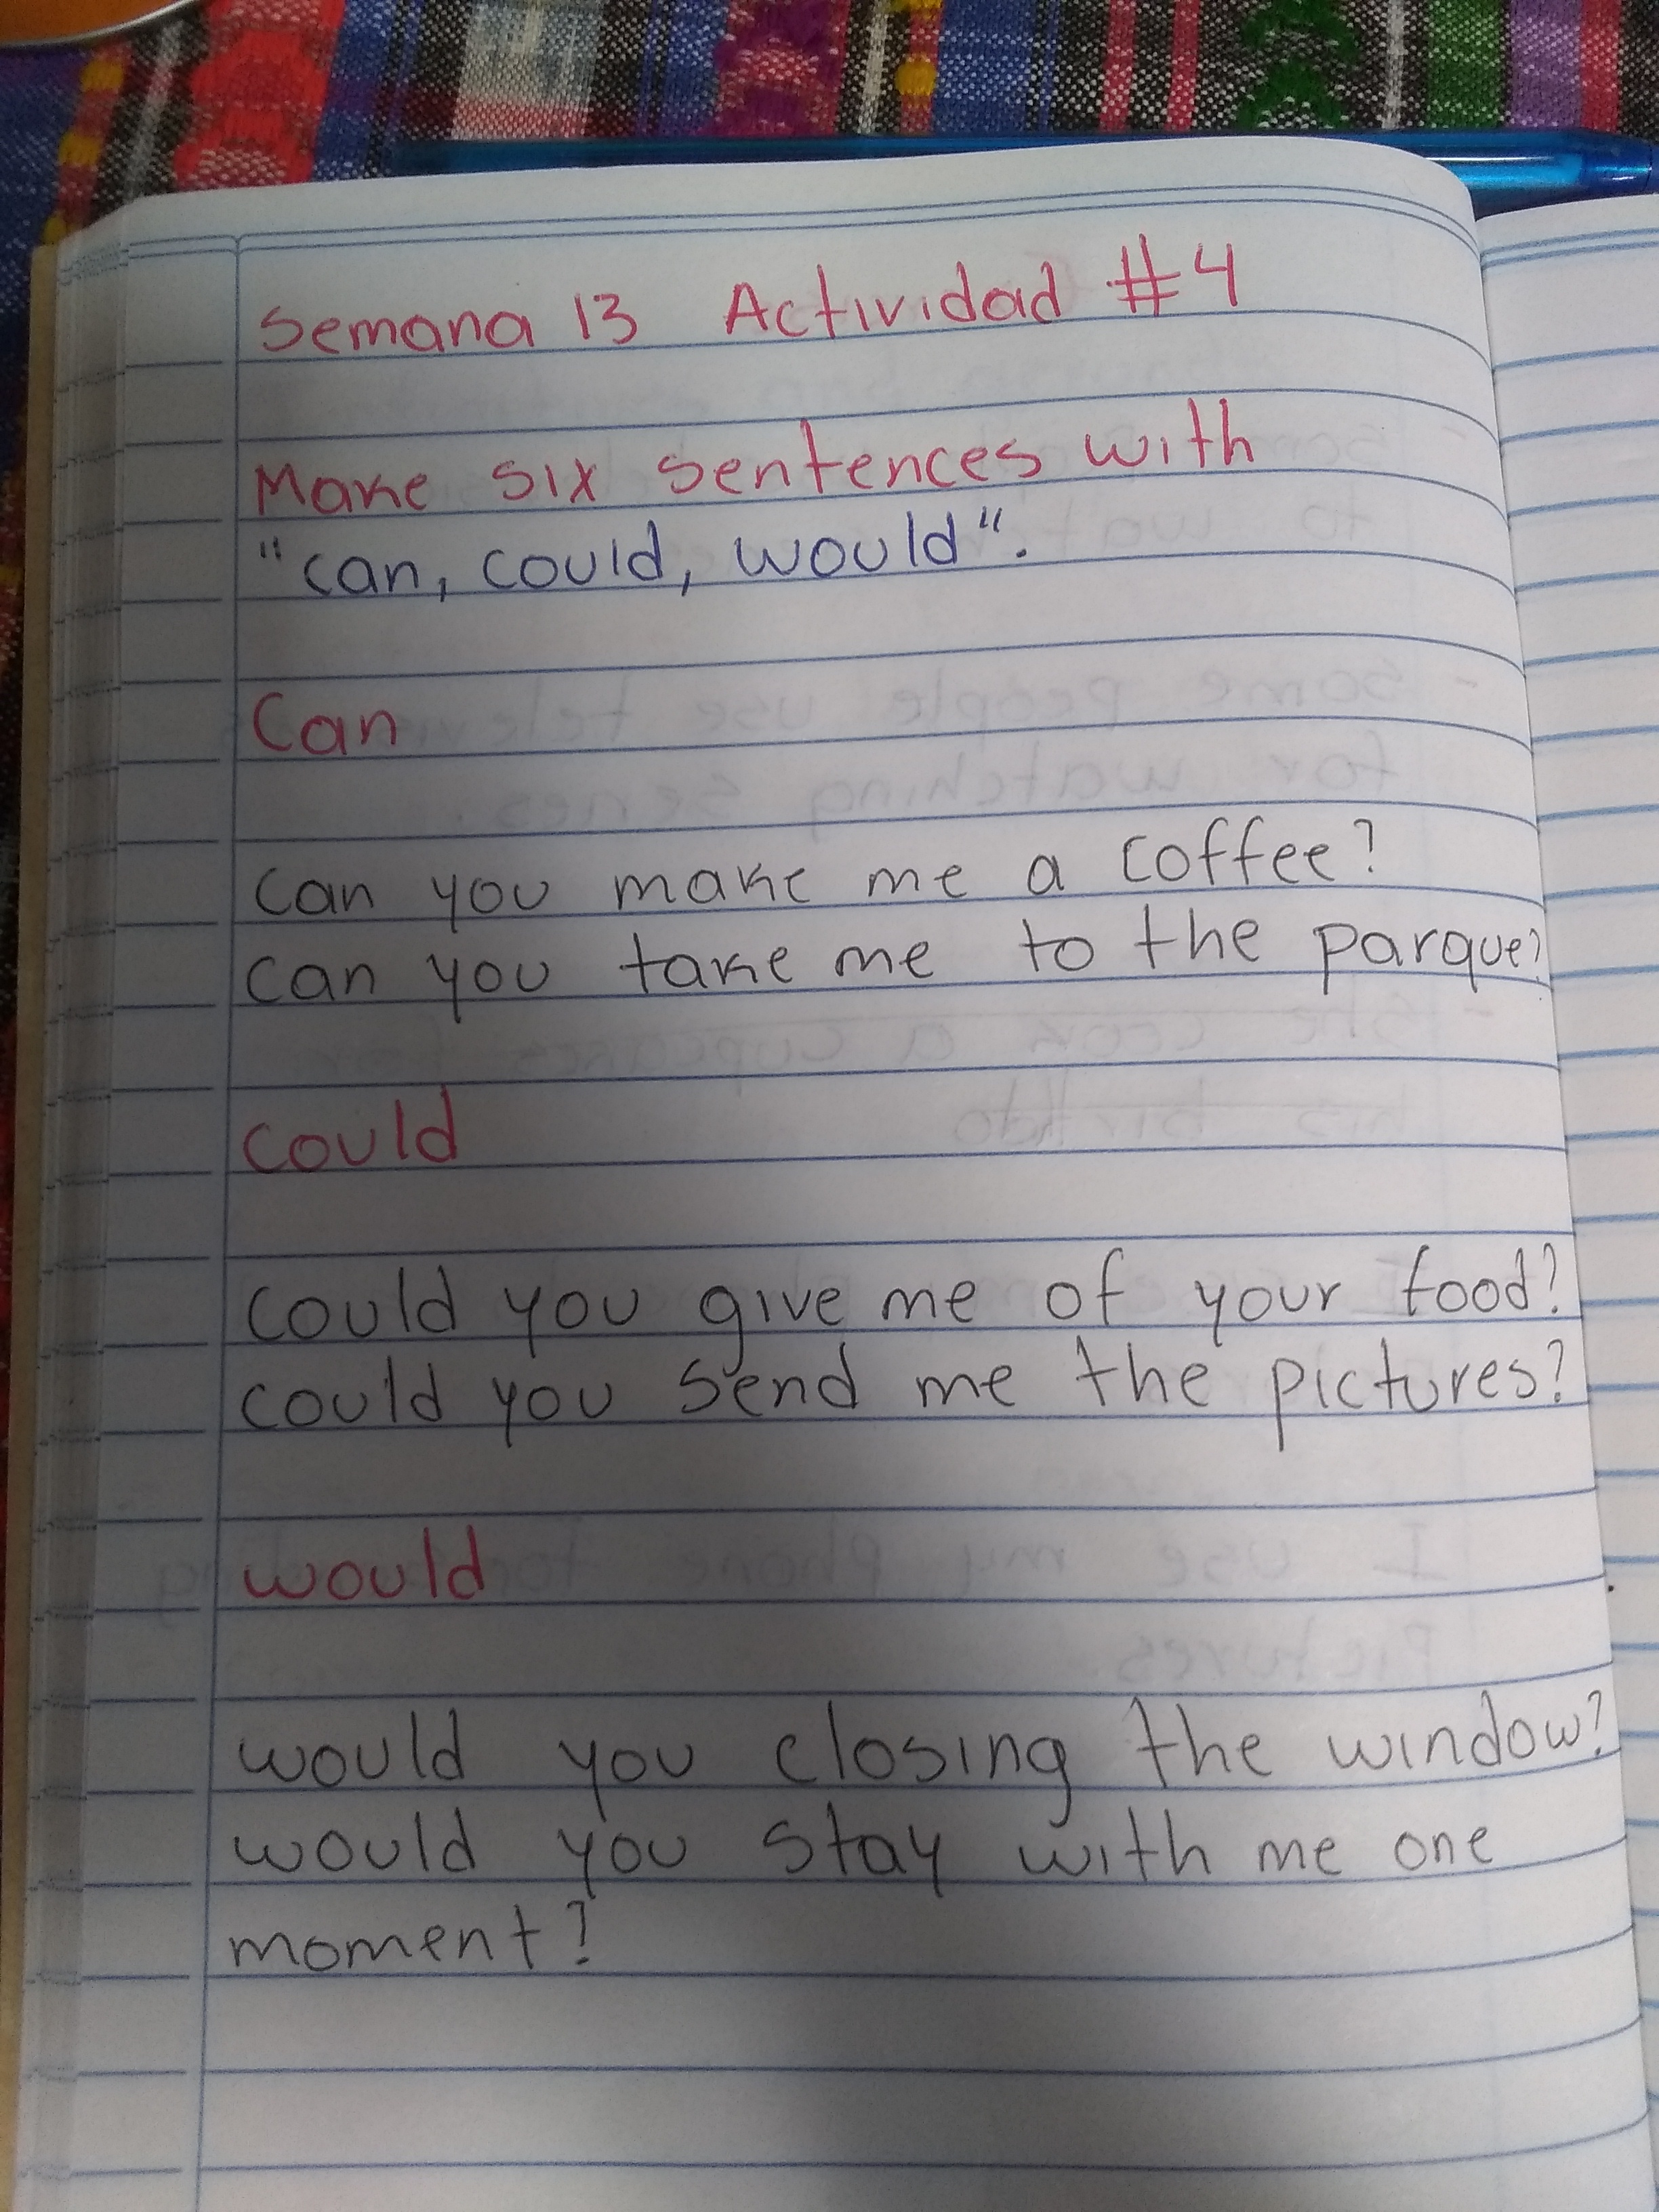 Semana 13 Actividad #4
Make six sentences with
"can, could, would".
Can
Can you make me a coffee?
Can you take me to the parque?
Could
Could you give me of your food?
Could you send me the pictures?
would
would you closing the window?
would you stay with me one
moment?